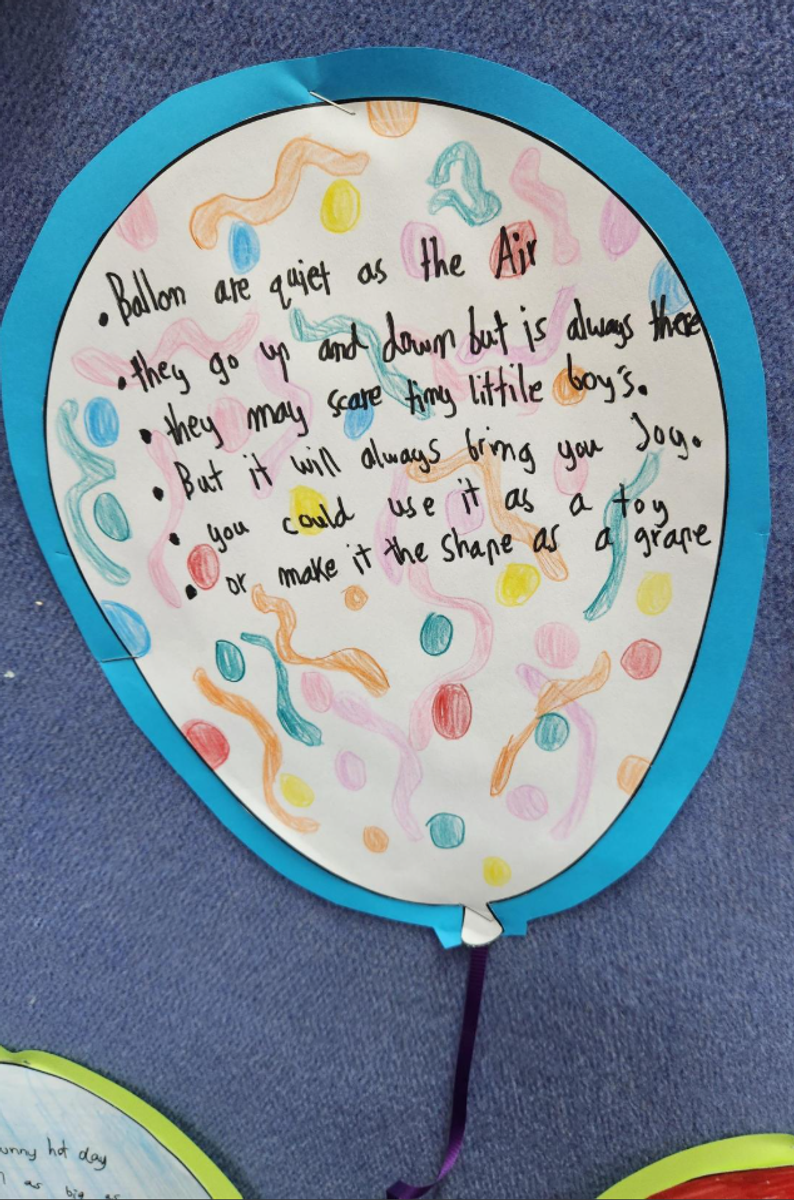 • Ballon are quiet as the Air
• they go up and down but is always there
• they may scare tiny littile boy's.
• But it will always bring you Joy.
• you could use it as a toy
• or make it the shape as a grape
unny hot day
as big as